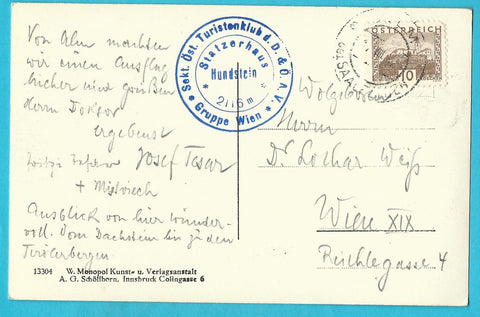 Von Alm machten
wir einen Ausflug
hieher und grüßen
Herrn Doktor
ergebenst
Josef Tesar
+
Ausblick von hier wunder-
voll. Vom Dachstein bis zu den
Tirolerbergen
13304 W. Monopol Kunst- u. Verlagsanstalt
A. G. Schöllhorn, Innsbruck Colingasse 6
Sekt. Öst. Turistenklub d. D. & Ö. A. V.
Statzerhaus
Hundstein
2116 m
Gruppe Wien
ÖSTERREICH
10
SAAL
Wohlgeboren
Herrn
Dr. Lothar Weiß
Wien XIX
Reithlegasse 4